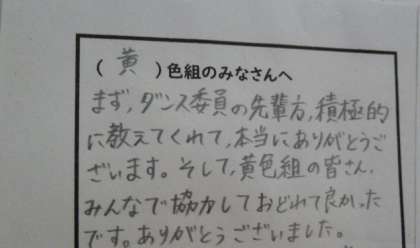 (黄)色組のみなさんへ
まず,ダンス委員の先輩方,積極的
に教えてくれて,本当にありがとうご
ざいます。そして,黄色組の皆さん,
みんなで協力しておどれて良かった
です。ありがとうございました。